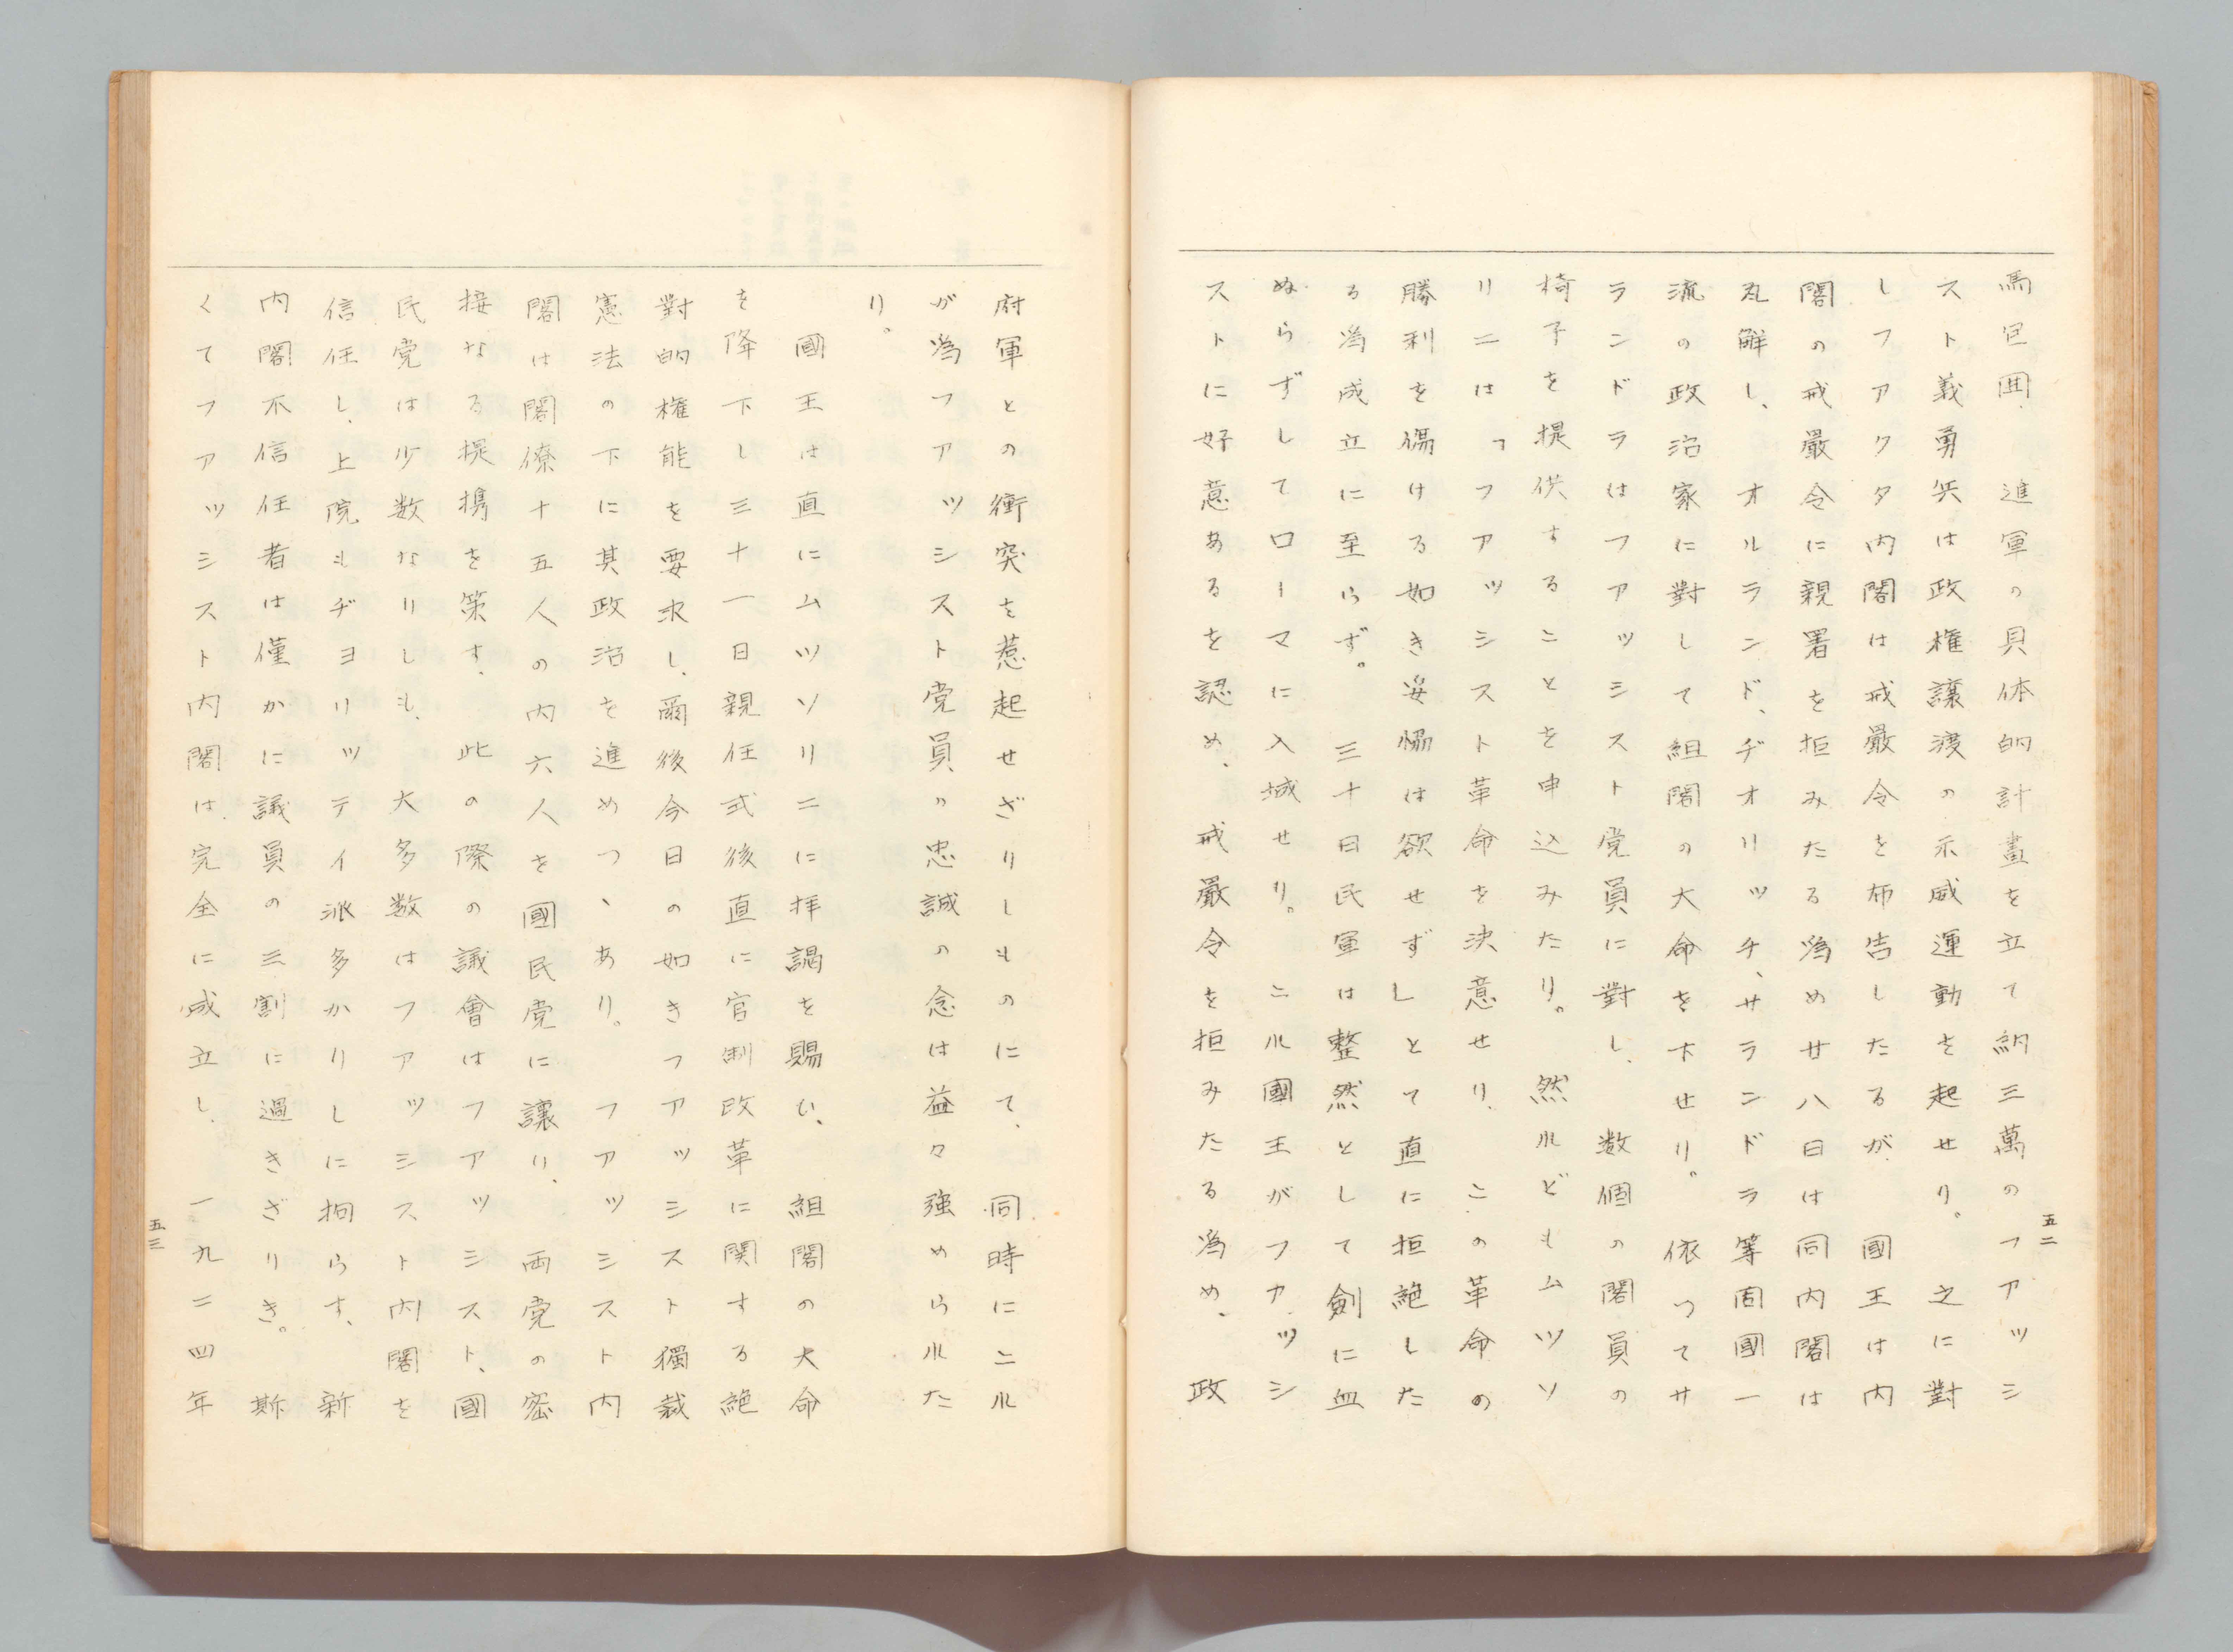 馬包囲、進軍の具体的計畫を立て約三萬のフアッシ
スト義勇兵は政権譲渡の示威運動を起せり。之に對
しフアクタ内閣は戒厳令を布告したるが、國王は内
閣の戒厳令に親署を拒みたる為め廿八日は同内閣は
瓦解し、オルランド、ヂオリッチ、サランドラ等固國一
流の政治家に對して組閣の大命を下せり。依つてサ
ランドラはフアッシスト党員に對し、数個の閣員の
椅子を提供することを申込みたり。然ルどもムツソ
リニは「フアッシスト革命を決意せり、この革命の
勝利を傷ける如き妥協は欲せずしとて直に拒絶した
る為成立に至らず。三十日民軍は整然として劍に血
ぬらずしてローマに入城せり。ニル國王がフカッシ
ストに好意あるを認め、戒厳令を拒みたる為め、政
五二
府軍との衝突を惹起せざりしものにて、同時にニル
が為フアッシスト党員の忠誠の念は益々強めらルた
り。
國王は直にムツソリニに拝謁を賜ひ、組閣の大命
を降下し三十一日親任式後直に官制改革に関する絶
對的権能を要求し、爾後今日の如きフアッシスト獨裁
憲法の下に其政治を進めつヽあり。フアッシスト内
閣は閣僚十五人の内六人を國民党に譲り、両党の密
接なる提携を策す、此の際の議會はフアッシスト、國
民党は少数なりしも、大多数はフアッシスト内閣を
信任し、上院もヂヨリッティ派多かりしに拘らす、新
内閣不信任者は僅かに議員の三割に過きざりき。斯
くてフアッシスト内閣は、完全に成立し、一九二四年
五三